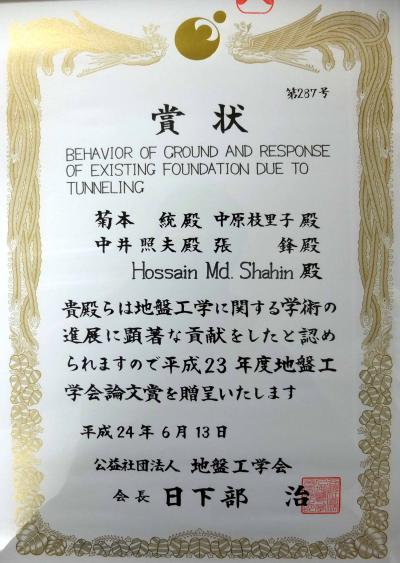 第287号
賞状
BEHAVIOR OF GROUND AND RESPONSE
OF EXISTING FOUNDATION DUE TO
TUNNELING
菊本 統殿 中原枝里子殿
中井照夫殿 張 鋒殿
Hossain Md. Shahin殿
貴殿らは地盤工学に関する学術の
進展に顕著な貢献をしたと認め
られますので平成23年度地盤工
学会論文賞を贈呈いたします
平成24年6月13日
公益社団法人 地盤工学会
会長 日下部 治